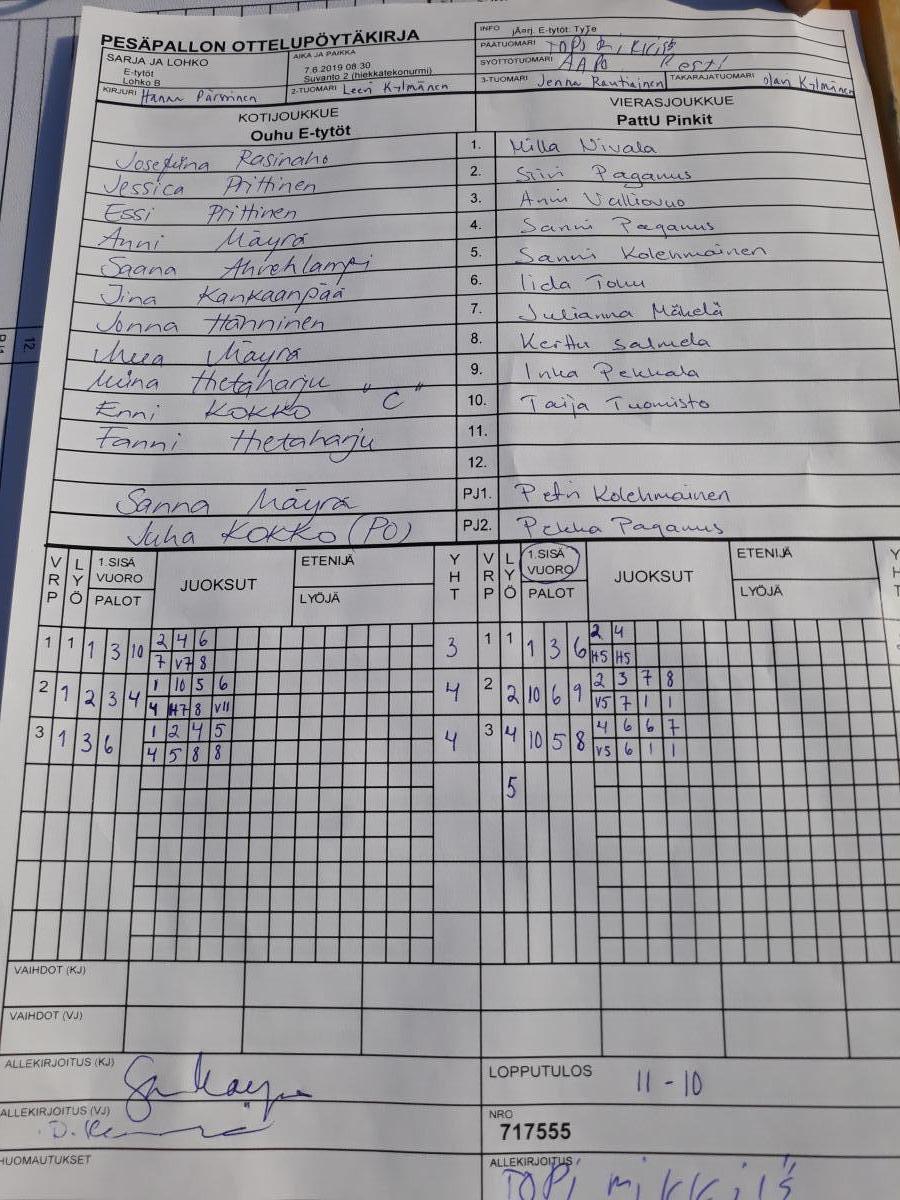 PESÄPALLON OTTELUPÖYTÄKIRJA
INFO jÄarj. E-tytöt: TyTe
PÄÄTUOMARI TOPI
SYÖTTÖTUOMARI AAPO
SARJA JA LOHKO
E-tytöt
Lohko B
AIKA JA PAIKKA
7.6.2019 08:30
Suvanto 2 (hiekkatekonurmi)
KIRJURI Hanna Pärssinen 2-TUOMARI Leevi Kylmänen 3-TUOMARI Jenna Rautiainen TAKARAJATUOMARI Olavi Kylmänen
KOTIJOUKKUE
Ouhu E-tytöt
VIERASJOUKKUE
PattU Pinkit
Josefiina Rasinaho 1. Milla Nivala
Jessica Prittinen 2. Siiri Paganus
Essi Prittinen 3. Anni
Anni Mäyrä 4. Sanni Paganus
Saana 5. Sanni Kolehmainen
Jina Kankaanpää 6. Iida
Jonna Hänninen 7. Julianna Mäkelä
Mäyrä 8. Kerttu Salmela
Hietaharju "C" 9. Inka Pekkala
Enni KOKKO 10. Taija Tuomisto
Fanni Hietaharju 11.
12.
Sanna Mäyrä PJ1. Petri Kolehmainen
Juha KOKKO (PO) PJ2. Pekka Paganus
VRP LYÖ 1.SISÄ VUORO PALOT JUOKSUT ETENIJÄ LYÖJÄ YHT VRP LYÖ 1.SISÄ VUORO PALOT JUOKSUT ETENIJÄ LYÖJÄ YHT
1 1 1 3 10 2 4 6 3 1 1 1 3 6 2 4
7 V7 8 H5 H5
2 1 2 3 4 1 10 5 6 4 2 2 10 6 9 2 3 7 8
4 H7 8 V11 V5 7 1 1
3 1 3 6 1 2 4 5 4 3 4 10 5 8 4 6 6 7
4 5 8 8 V5 6 1 1
5
VAIHDOT (KJ)
VAIHDOT (VJ)
ALLEKIRJOITUS (KJ)
LOPPUTULOS 11 - 10
ALLEKIRJOITUS (VJ)
NRO
717555
HUOMAUTUKSET
ALLEKIRJOITUS
TOPI